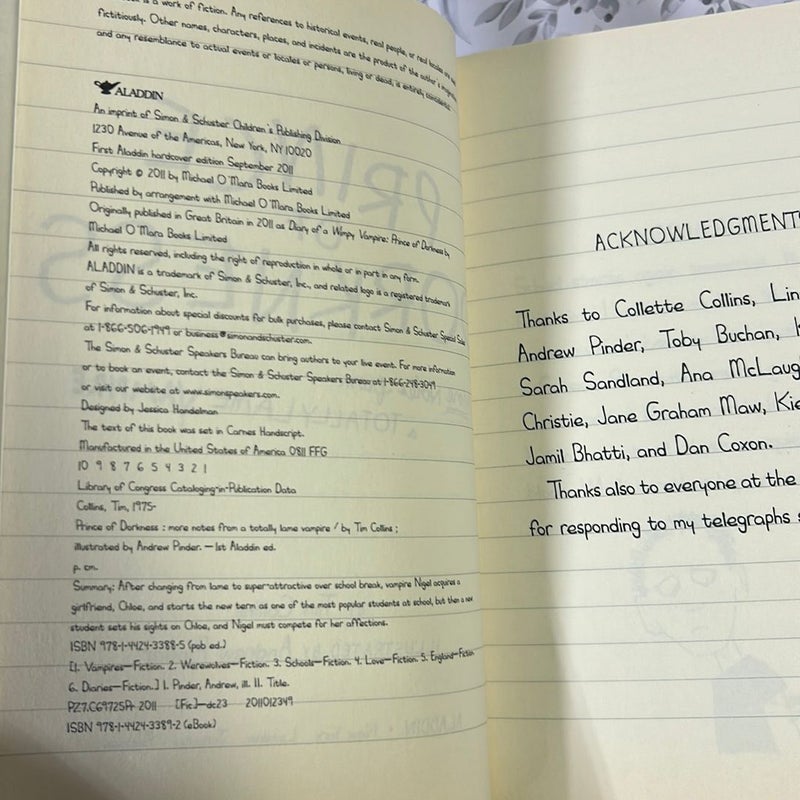 is a work of fiction. Any references to historical events, real people, or real locales are used
fictitiously. Other names, characters, places, and incidents are the product of the author's imagination,
and any resemblance to actual events or locales or persons, living or dead, is entirely coincidental.
ALADDIN
An imprint of Simon & Schuster Children's Publishing Division
1230 Avenue of the Americas, New York, NY 10020
First Aladdin hardcover edition September 2011
Copyright © 2011 by Michael O'Mara Books Limited
Published by arrangement with Michael O'Mara Books Limited
Originally published in Great Britain in 2011 as Diary of a Wimpy Vampire: Prince of Darkness by
Michael O'Mara Books Limited
All rights reserved, including the right of reproduction in whole or in part in any form.
ALADDIN is a trademark of Simon & Schuster, Inc., and related logo is a registered trademark
of Simon & Schuster, Inc.
For information about special discounts for bulk purchases, please contact Simon & Schuster Special Sales
at 1-866-506-1949 or business@simonandschuster.com.
The Simon & Schuster Speakers Bureau can bring authors to your live event. For more information
or to book an event, contact the Simon & Schuster Speakers Bureau at 1-866-248-3049
or visit our website at www.simonspeakers.com.
Designed by Jessica Handelman
The text of this book was set in Carnes Handscript.
Manufactured in the United States of America 0811 FFG
10 9 8 7 6 5 4 3 2 1
Library of Congress Cataloging-in-Publication Data
Collins, Tim, 1975-
Prince of Darkness : more notes from a totally lame vampire / by Tim Collins ;
illustrated by Andrew Pinder. — 1st Aladdin ed.
p. cm.
Summary: After changing from lame to super-attractive over school break, vampire Nigel acquires a
girlfriend, Chloe, and starts the new term as one of the most popular students at school, but then a new
student sets his sights on Chloe, and Nigel must compete for her affections.
ISBN 978-1-4424-3388-5 (pob ed.)
[1. Vampires—Fiction. 2. Werewolves—Fiction. 3. Schools—Fiction. 4. Love—Fiction. 5. England—Fiction.
6. Diaries—Fiction.] I. Pinder, Andrew, ill. II. Title.
PZ7.C69725Pr 2011 [Fic]—dc23 2011012349
ISBN 978-1-4424-3389-2 (eBook)
ACKNOWLEDGMENTS
Thanks to Collette Collins, Lin
Andrew Pinder, Toby Buchan,
Sarah Sandland, Ana McLaug
Christie, Jane Graham Maw, Kie
Jamil Bhatti, and Dan Coxon.
Thanks also to everyone at the
for responding to my telegraphs s